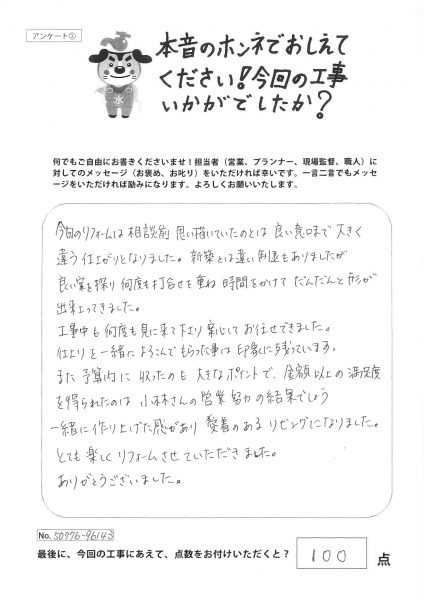 アンケート②
本音のホンネでおしえて
ください!今回の工事
いかがでしたか?
水
何でもご自由にお書きくださいませ!担当者(営業、プランナー、現場監督、職人)に
対してのメッセージ(お褒め、お叱り)をいただければ幸いです。一言二言でもメッセ
ージをいただければ励みになります。よろしくお願いいたします。
今回のリフォームは相談前 思い描いていたのとは 良い意味で 大きく
違う仕上がりとなりました。新築とは違い 制限もありましたが
良い案を探り 何度も打合せを重ね 時間をかけて だんだんと形が
出来上ってきました。
工事中も何度も見に来て下さり 安心してお任せできました。
仕上りを一緒によろこんでもらった事は 印象に残っています。
また 予算内に収ったのも 大きなポイントで、金額以上の満足度
を得られたのは 小林さんの営業努力の結果でしょう
一緒に作り上げた感があり 愛着のある リビングになりました。
とても楽しくリフォームさせていただきました。
ありがとうございました。
No. 50776-96143
最後に、今回の工事にあえて、点数をお付けいただくと? 100 点